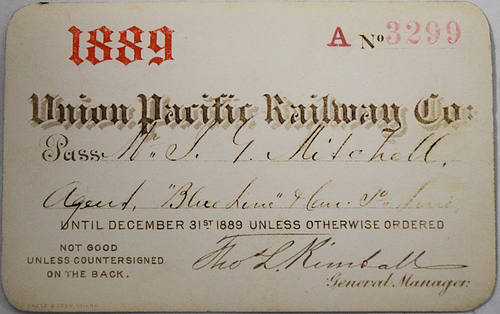 1889
A No 3299
Union Pacific Railway Co:
Pass Mr. S. G. Mitchell,
Agent, "Blue Line" &
UNTIL DECEMBER 31ST 1889 UNLESS OTHERWISE ORDERED
NOT GOOD
UNLESS COUNTERSIGNED
ON THE BACK.
Tho L. Kimball
General Manager.